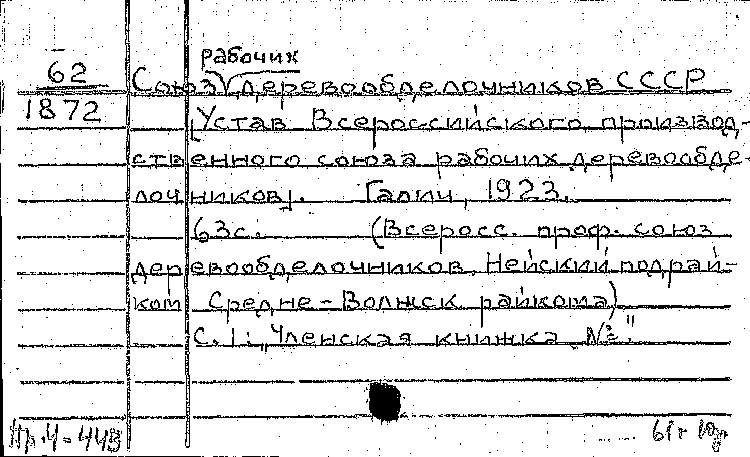 рабочих
62
1872
Союз деревообделочников СССР
[Устав Всероссийского производ-
ственного союза рабочих деревообде-
лочников]. Галич, 1923.
63с. (Всеросс. проф. союз
деревообделочников. Нейский подрай-
ком Средне-Волжск. райкома)
С. 1: „Членская книжка №"
Пр. 4-443
61г